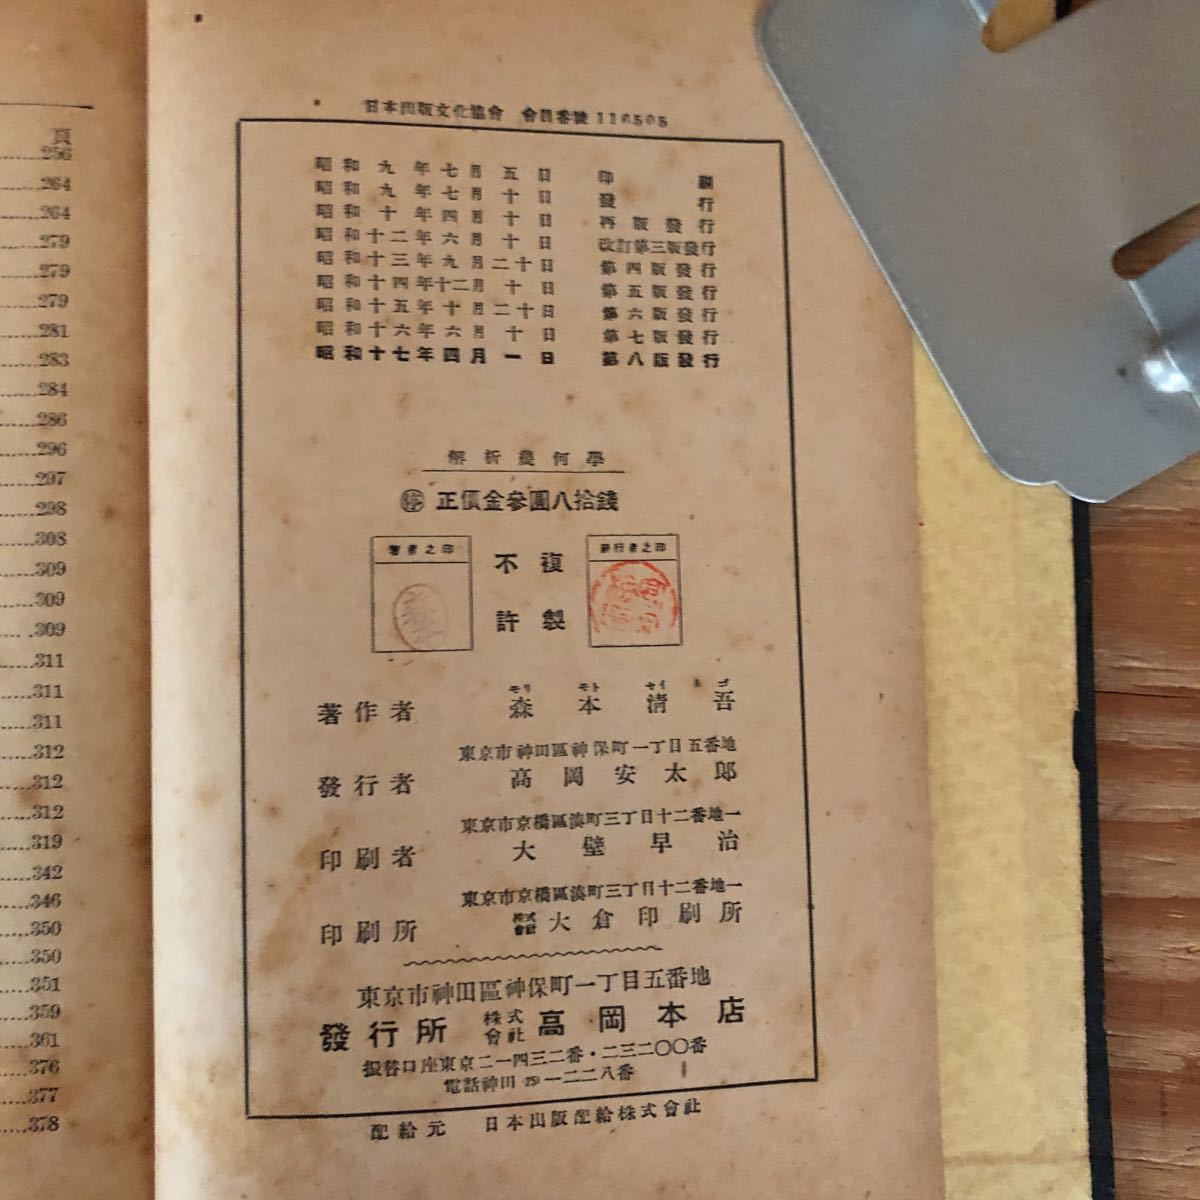 頁
256
264
264
279
279
279
281
283
284
286
296
297
298
308
309
309
309
311
311
311
312
312
312
319
342
346
350
350
351
359
361
376
377
378
日本出版文化協會 會員番號 116505
昭和九年七月五日 印刷
昭和九年七月十日 發行
昭和十年四月十日 再版發行
昭和十二年六月十日 改訂第三版發行
昭和十三年九月二十日 第四版發行
昭和十四年十二月十日 第五版發行
昭和十五年十月二十日 第六版發行
昭和十六年六月十日 第七版發行
昭和十七年四月一日 第八版發行
解析幾何學
正價金參圓八拾錢
著者之印
不許
複製
發行者之印
モリ モト セイ ゴ
著作者 森本淸吾
東京市神田區神保町一丁目五番地
發行者 高岡安太郎
東京市京橋區湊町三丁目十二番地一
印刷者 大壁早治
東京市京橋區湊町三丁目十二番地一
印刷所 株式會社 大倉印刷所
東京市神田區神保町一丁目五番地
發行所 株式會社 高岡本店
振替口座東京二一四三二番・二三二〇〇番
電話神田 一二二八番
配給元 日本出版配給株式會社